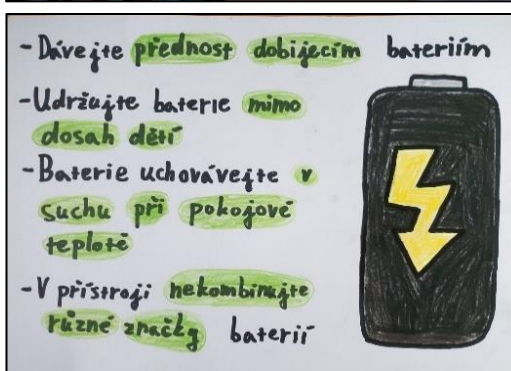 - Dávejte přednost dobíjecím bateriím
- Udržujte baterie mimo
dosah dětí
- Baterie uchovávejte v
suchu při pokojové
teplotě
- V přístroji nekombinujte
různé značky baterií